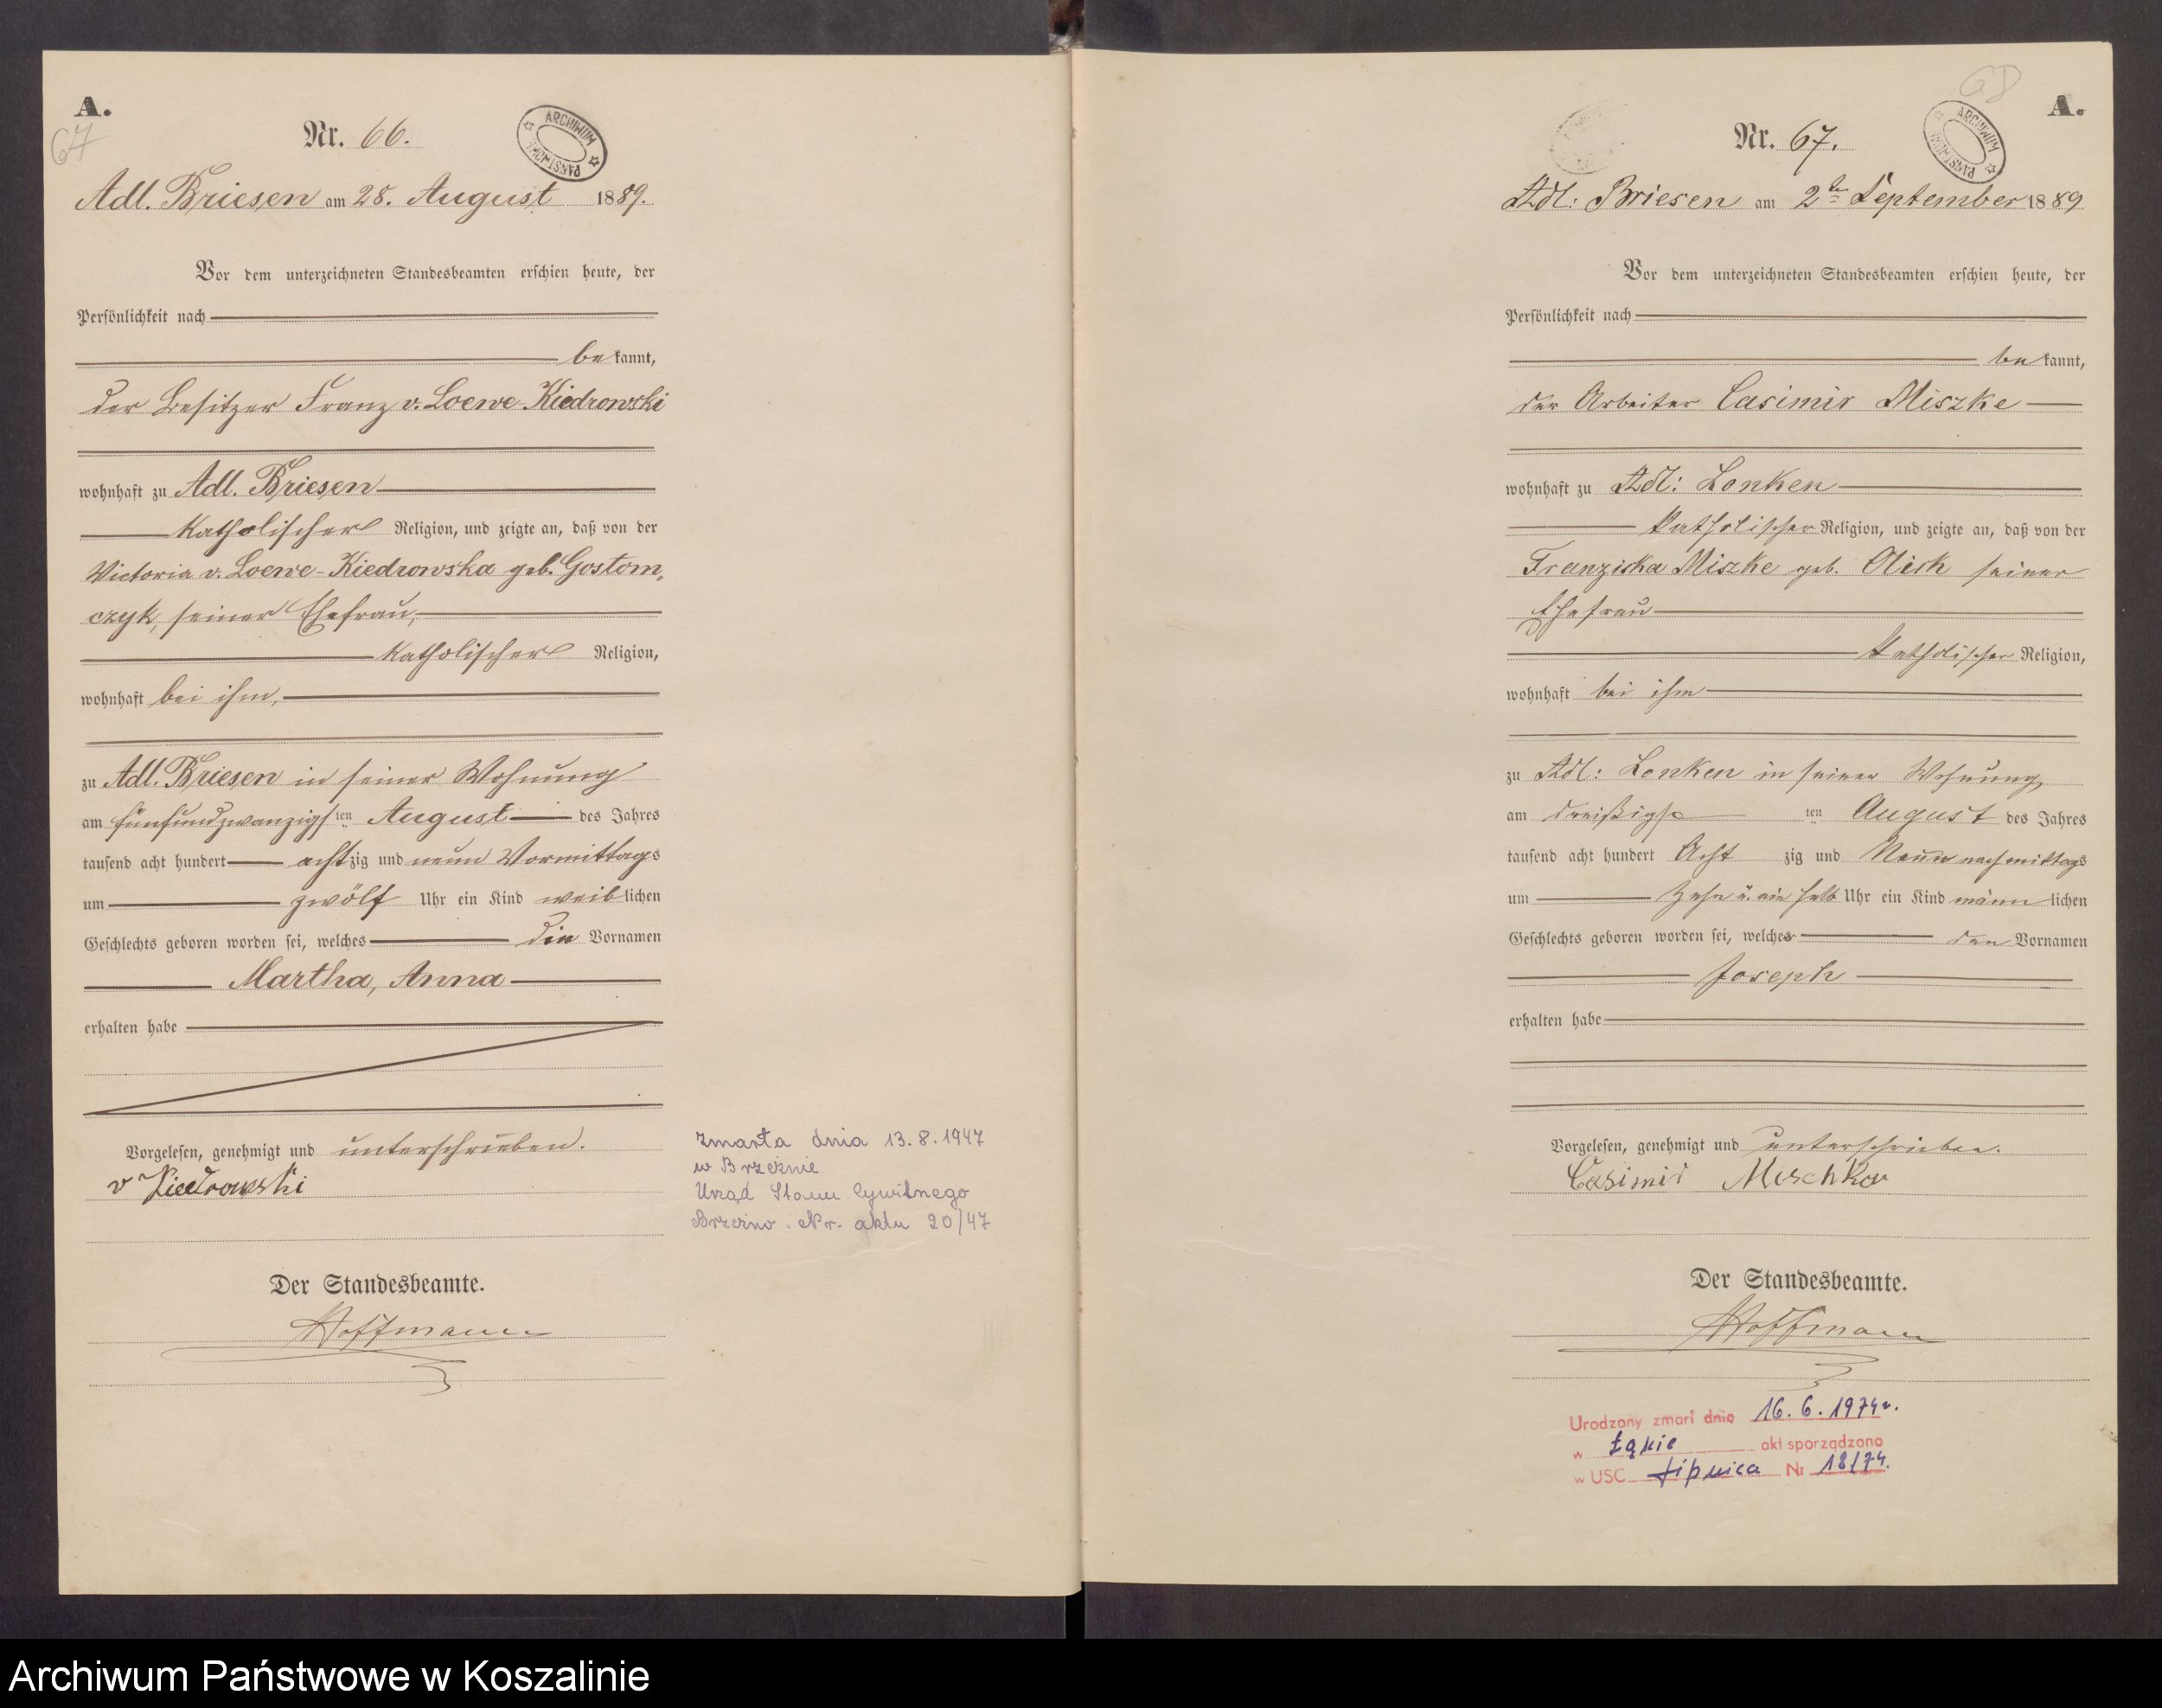 A.
67
Nr. 66.
ARCHIWUM PAŃSTWOWE
Adl. Briesen am 28. August 1889.
Vor dem unterzeichneten Standesbeamten erschien heute, der
Persönlichkeit nach
be kannt,
der Besitzer Franz v. Loewe-Kiedrowski
wohnhaft zu Adl. Briesen
katholischer Religion, und zeigte an, daß von der
Victoria v. Loewe-Kiedrowska geb. Gostom-
czyk, seiner Ehefrau,
katholischer Religion,
wohnhaft bei ihm,
zu Adl. Briesen in seiner Wohnung
am fünfundzwanzigs ten August des Jahres
tausend acht hundert achtzig und neun Vormittags
um zwölf Uhr ein Kind weiblichen
Geschlechts geboren worden sei, welches die Vornamen
Martha, Anna
erhalten habe
Vorgelesen, genehmigt und unterschrieben.
v Kiedrowski
Der Standesbeamte.
Hoffmann
zmarła dnia 13.8.1947
w Brzeźnie
Urząd Stanu Cywilnego
Brzeźno. Nr. aktu 20/47
68
A.
Nr. 67.
ARCHIWUM PAŃSTWOWE
Adl: Briesen am 2ten September 1889
Vor dem unterzeichneten Standesbeamten erschien heute, der
Persönlichkeit nach
be kannt,
der Arbeiter Casimir Miszke
wohnhaft zu Adl: Lonken
katholischer Religion, und zeigte an, daß von der
Franziska Miszke geb. Olick seiner
Ehefrau
katholischer Religion,
wohnhaft bei ihm
zu Adl: Lonken in seiner Wohnung
am dreißigs ten August des Jahres
tausend acht hundert Acht zig und Neun nachmittags
um Zehn u. ein halb Uhr ein Kind männ lichen
Geschlechts geboren worden sei, welches den Vornamen
Joseph
erhalten habe
Vorgelesen, genehmigt und unterschrieben.
Casimir Mischker
Der Standesbeamte.
Hoffmann
Urodzony zmarł dnia 16.6.1974r.
w Łąkie akt sporządzono
w USC Lipnica Nr 18/74.
Archiwum Państwowe w Koszalinie